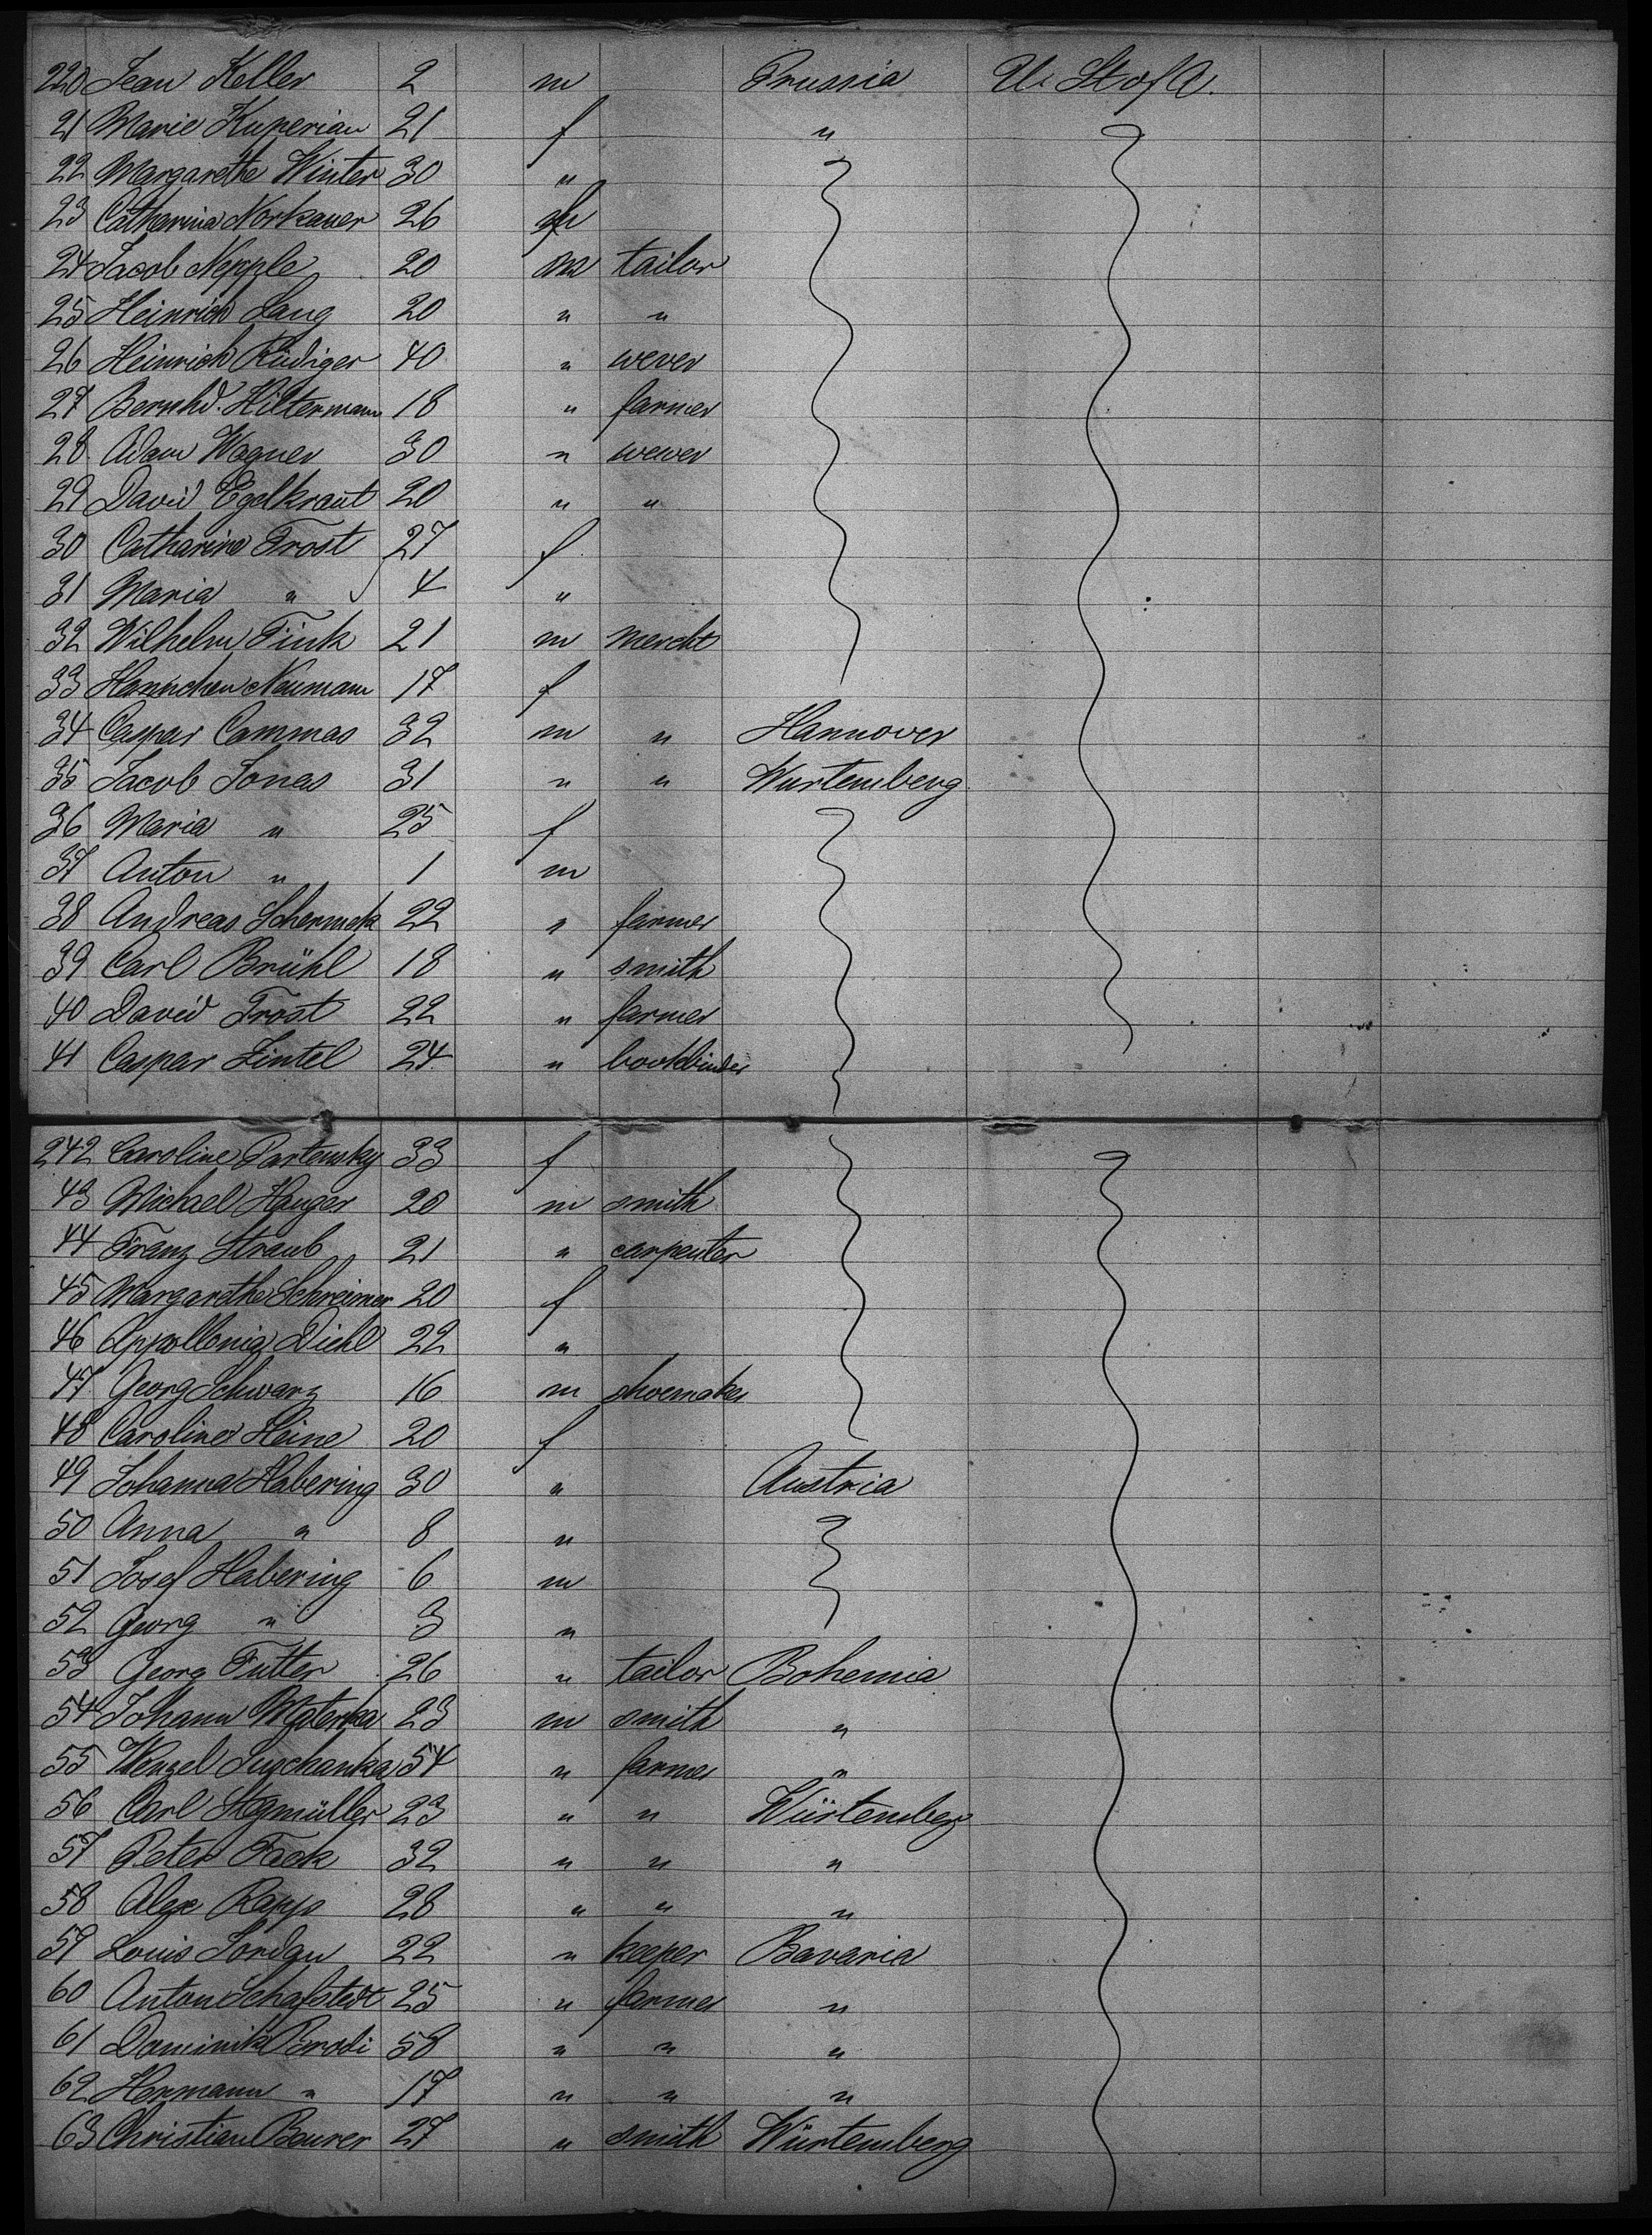 220 Jean Keller 2 m Prussia U. St of A.
21 Marie Kuperian 21 f "
22 Margarethe Winter 30 "
23 Catharina Norkauer 26 f
24 Jacob Nepple 20 m tailor
25 Heinrich Lang 20 " "
26 Heinrich Rüdiger 40 " wever
27 Bernhd. Hilterman 18 " farmer
28 Adam Wagner 30 " wewer
29 David Egelkraut 20 " "
30 Catharine Frost 27 f
31 Maria " 4 "
32 Wilhelm Fink 21 m mercht
33 Hannchen Neumann 17 f
34 Caspar Cammas 32 m " Hannover
35 Jacob Jonas 31 " " Wurtemberg
36 Maria " 25 f
37 Anton " 1 m
38 Andreas 22 " farmer
39 Carl Brühl 18 " smith
40 David Frost 22 " farmer
41 Caspar Lintel 24 " bookbinder
242 Caroline Partensky 33 f
43 Michael Hauger 20 m smith
44 Franz Straub 21 " carpenter
45 Margarethe Schreiner 20 f
46 Appollonia Diehl 22 "
47 Georg Schwarz 16 m shoemaker
48 Caroline Heine 20 f
49 Johanna Habering 30 " Austria
50 Anna " 8 "
51 Josef Habering 6 m
52 Georg " 3 "
53 Georg Futter 26 " tailor Bohemia
54 Johann Materka 23 m smith "
55 Wenzel 54 " farmer "
56 Carl Stegmüller 23 " " Würtemberg
57 Peter Fack 32 " " "
58 Alex Rapp 28 " " "
59 Louis Jordan 22 " keeper Bavaria
60 Anton Schafstedt 25 " farmer "
61 Dominik Brodi 58 " " "
62 Hermann " 17 " " "
63 Christian Beurer 27 " smith Würtemberg